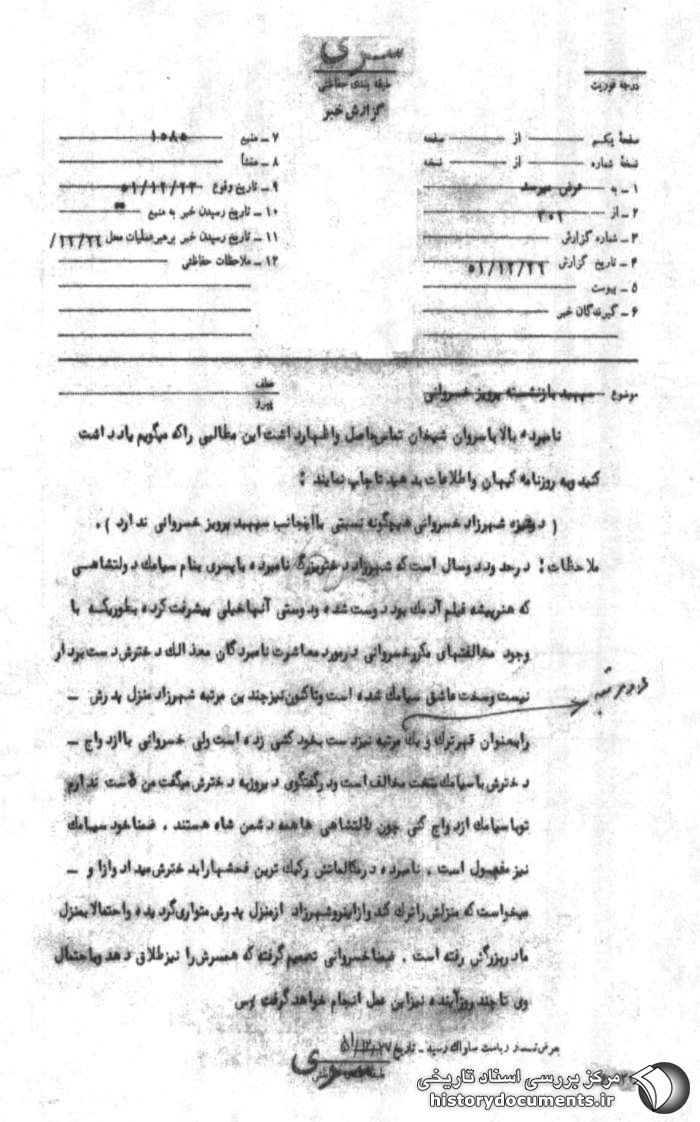 سری
طبقه بندی حفاظتی
گزارش خبر
درجه فوریت
صفحهٔ یکم از صفحه
نسخهٔ شماره از نسخه
۱ – به عرض میرسد
۲ – از ۳۰۲
۳ – شماره گزارش
۴ – تاریخ گزارش ۵۱/۱۲/۲۶
۵ – پیوست
۶ – گیرندگان خبر
۷ – منبع ۱۰۸۵
۸ – منشأ
۹ – تاریخ وقوع ۵۱/۱۲/۲۳
۱۰ – تاریخ رسیدن خبر به منبع
۱۱ – تاریخ رسیدن خبر برهبر عملیات محل /۱۲/۲۴
۱۲ – ملاحظات حفاظتی
موضوع سپهبد بازنشسته پرویز خسروانی
عطف
پیرو
نامبرده بالا با سروان شیخان تماس حاصل و اظهار داشت این مطالبی را که میگویم یادداشت
کنید و به روزنامه کیهان و اطلاعات بدهید تا چاپ نمایند :
( دوشیزه شهرزاد خسروانی هیچگونه نسبتی با اینجانب سپهبد پرویز خسروانی ندارد ) .
ملاحظات : در حدود دو سال است که شهرزاد دختر بزرگ نامبرده با پسری بنام سیامک دولتشاهی
که هنرپیشه فیلم آدمک بود دوست شده و دوستی آنها خیلی پیشرفت کرده بطوریکه با
وجود مخالفتهای مکرر خسروانی در مورد معاشرت نامبردگان معذالک دخترش دست بردار
نیست و سخت عاشق سیامک شده است و تاکنون نیز چندین مرتبه شهرزاد منزل پدرش –
را بعنوان قهر ترک و یک مرتبه نیز دست بخود کشی زده است ولی خسروانی با ازدواج –
دخترش با سیامک سخت مخالف است و در گفتگوی دیروز به دخترش میگفت من دوست ندارم
تو با سیامک ازدواج کنی چون دولتشاهی ها همه دشمن شاه هستند . ضمنا خود سیامک
نیز مفعول است . نامبرده در مکالماتش رکیک ترین فحشها را بدخترش میداد و از او –
میخواست که منزلش را ترک کند و از اینرو شهرزاد از منزل پدرش متواری گردیده و احتمالا بمنزل
مادربزرگش رفته است . ضمنا خسروانی تصمیم گرفته که همسرش را نیز طلاق دهد و باحتمال
وی تا چند روز آینده نیز این عمل انجام خواهد گرفت
بعرض تیمسار ریاست ساواک رسید – تاریخ ۵۱/۱۲/۲۷
سری
طبقه بندی حفاظتی
مرکز بررسی اسناد تاریخی
historydocuments.ir